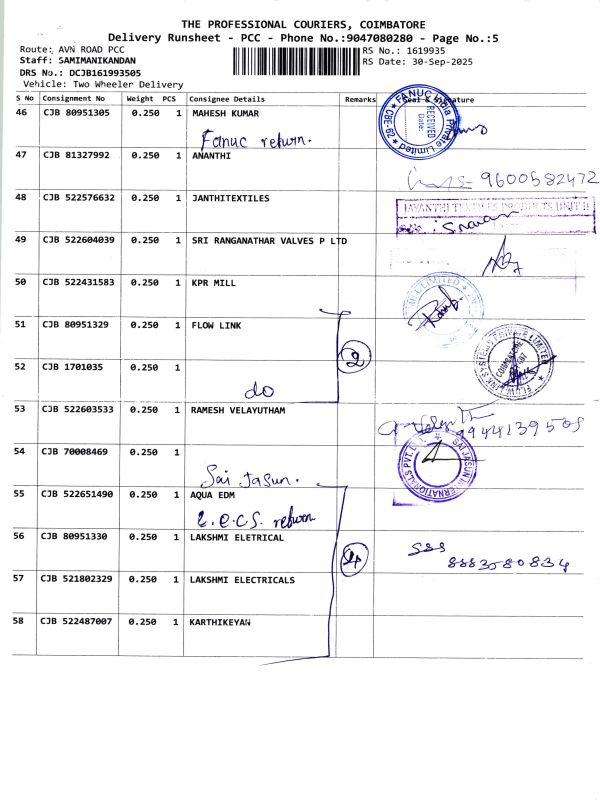 THE PROFESSIONAL COURIERS, COIMBATORE
Delivery Runsheet - PCC - Phone No.:9047080280 - Page No.:5
Route: AVN ROAD PCC
Staff: SAMIMANIKANDAN
DRS No.: DCJB161993505
Vehicle: Two Wheeler Delivery
RS No.: 1619935
RS Date: 30-Sep-2025
S No Consignment No Weight PCS Consignee Details Remarks Seal & Signature
46 CJB 80951305 0.250 1 MAHESH KUMAR
Fanuc return.
FANUC India Private Limited
CBE-62
RECEIVED
Date:
47 CJB 81327992 0.250 1 ANANTHI
9600582472
48 CJB 522576632 0.250 1 JANTHITEXTILES
JAYANTHI TEXTILES PRODUCTS UNIT II
49 CJB 522604039 0.250 1 SRI RANGANATHAR VALVES P LTD
50 CJB 522431583 0.250 1 KPR MILL
MILL LIMITED
51 CJB 80951329 0.250 1 FLOW LINK
2
FLOW LINK SYSTEMS PRIVATE LIMITED
COIMBATORE
52 CJB 1701035 0.250 1
do
53 CJB 522603533 0.250 1 RAMESH VELAYUTHAM
9944139505
54 CJB 70008469 0.250 1
Sai Jasun.
SAI JASUN INTERNATIONALS PVT. LTD.
55 CJB 522651490 0.250 1 AQUA EDM
L.e.c.s. return
56 CJB 80951330 0.250 1 LAKSHMI ELETRICAL
4
8883580834
57 CJB 521802329 0.250 1 LAKSHMI ELECTRICALS
58 CJB 522487007 0.250 1 KARTHIKEYAN